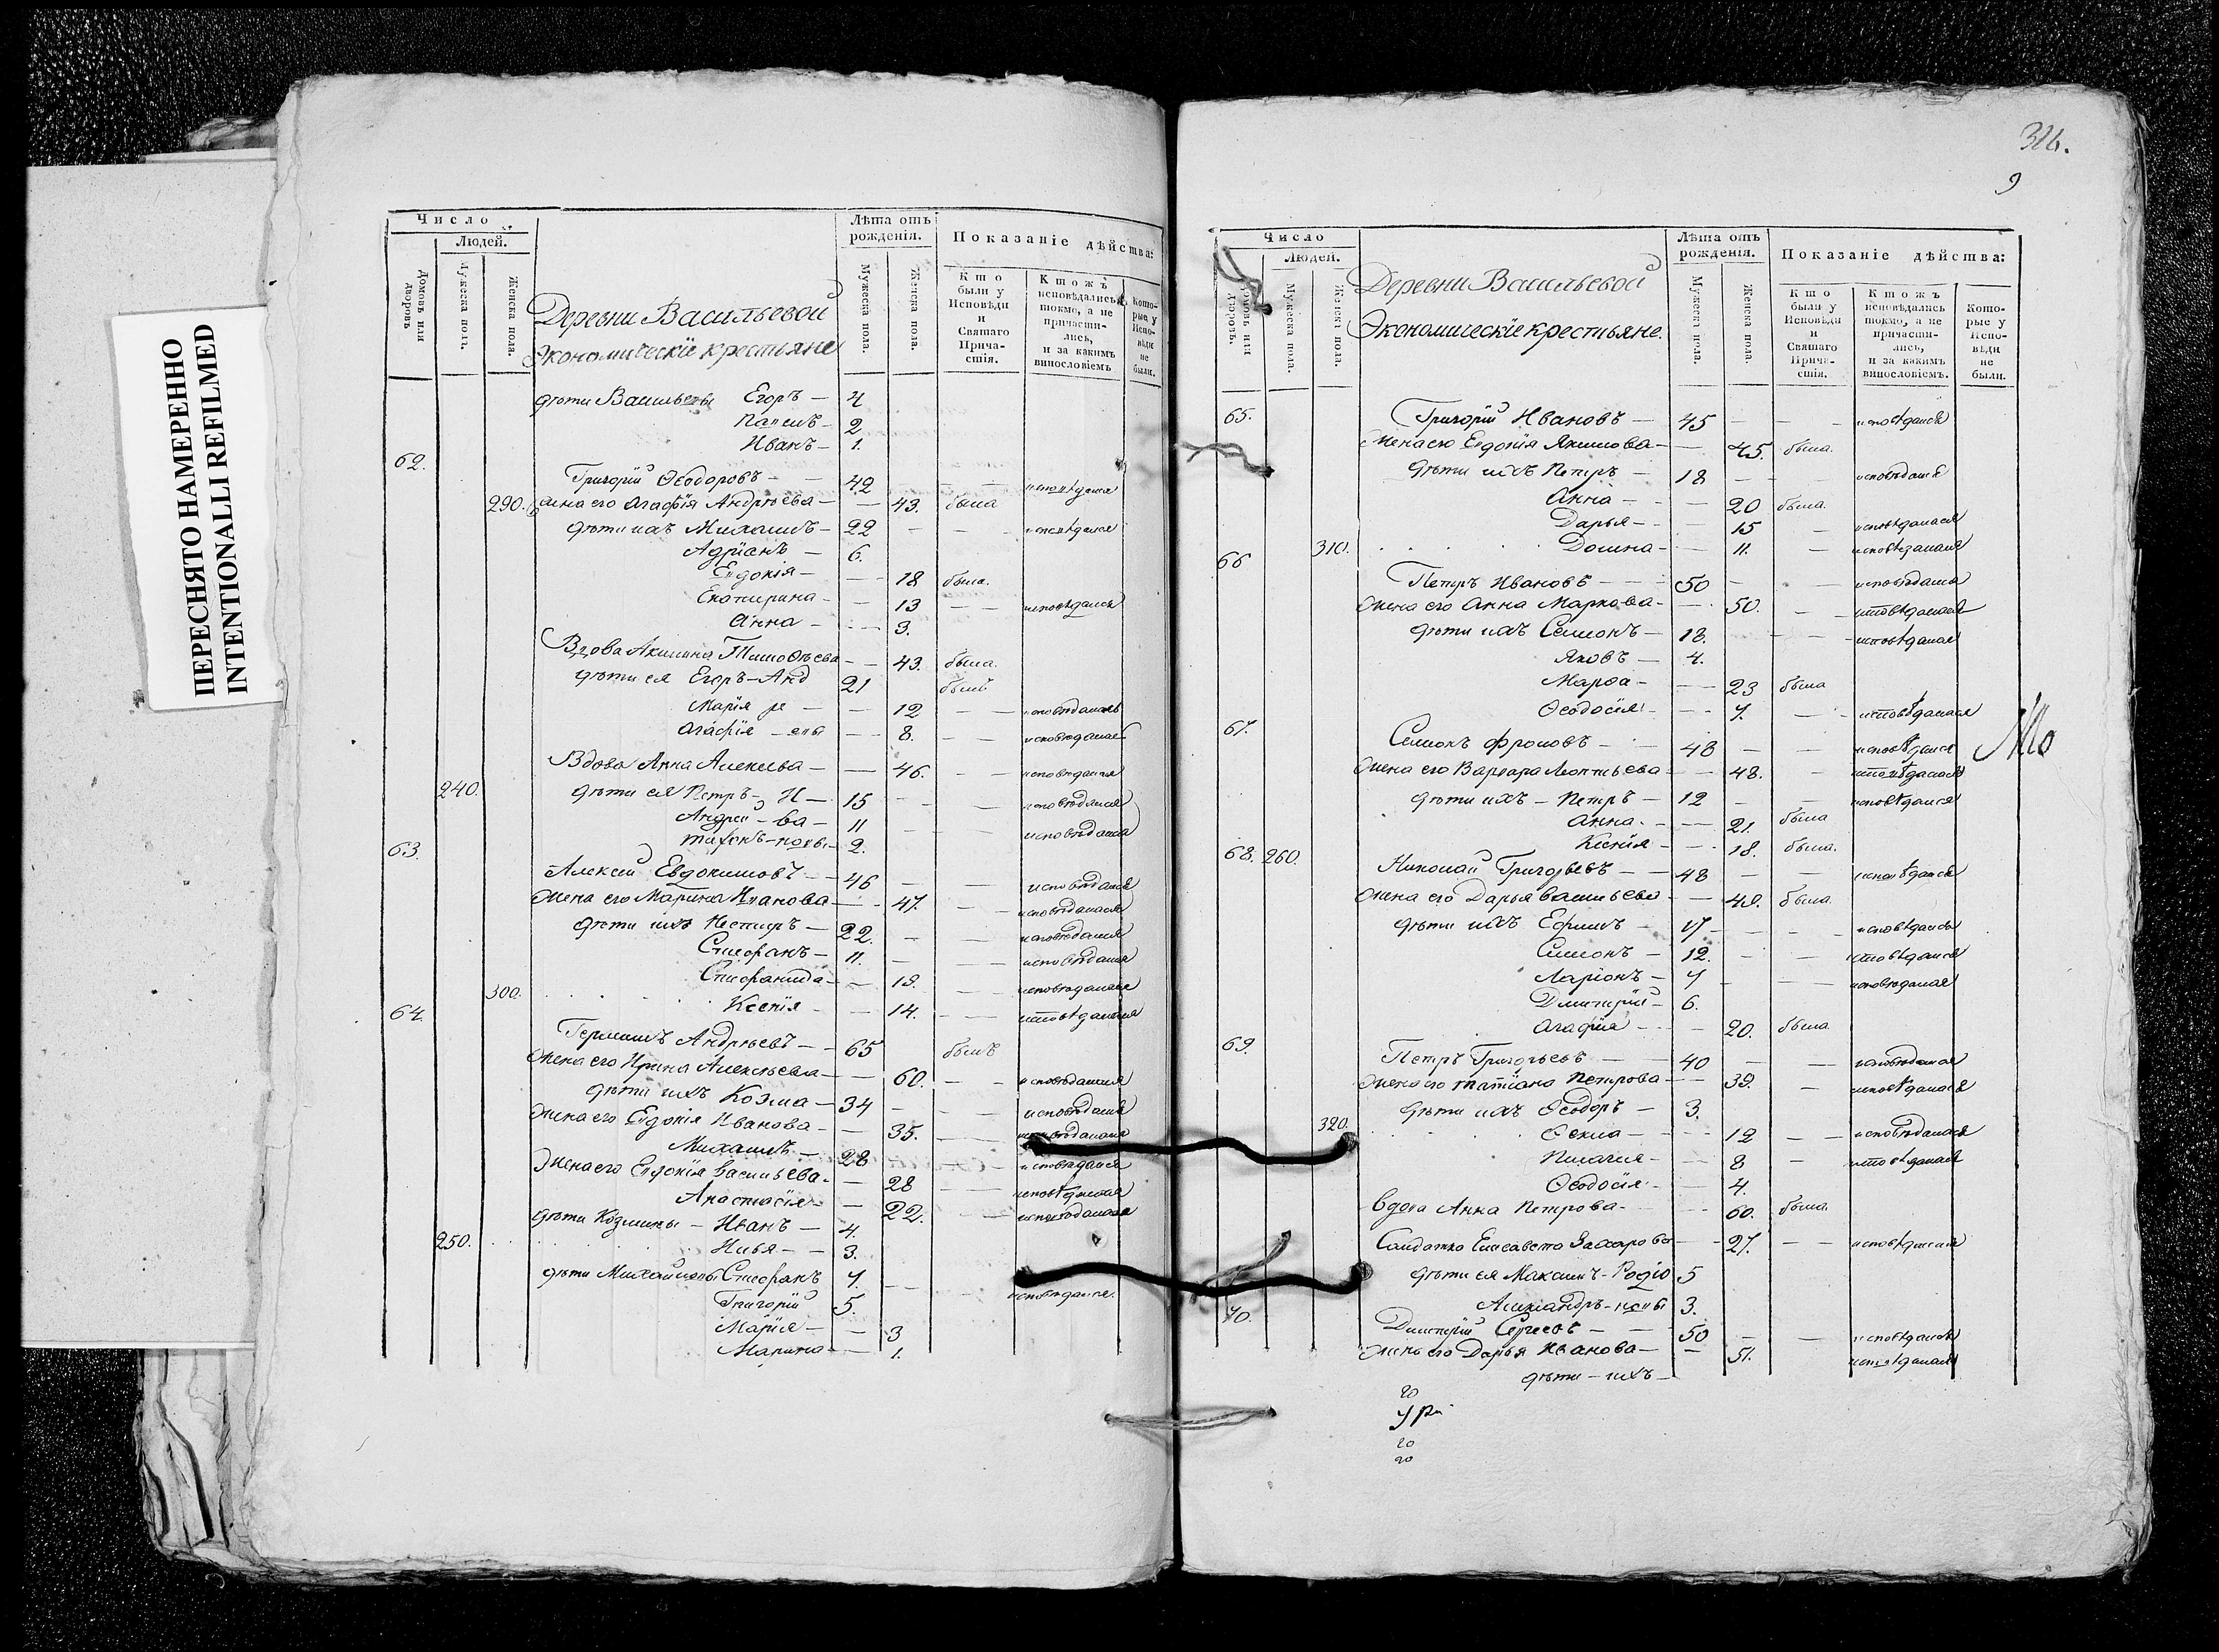 ПЕРЕСНЯТО НАМЕРЕННО
INTENTIONALLI REFILMED
Число
Людей.
домовъ или дворовъ
Мужеска полу.
Женска пола.
Деревни Васильевой
Экономическіе крестьяне
Лѣта отъ рожденія.
Мужеска пола.
Женска пола.
Показаніе дѣйства:
Кто были у Исповѣди и Святаго Причастія.
Ктожъ исповѣдались токмо, а не причастились, и за какимъ винословіемъ
Которые у Исповѣди не были.
дѣти Васильевы Егоръ — 4
Павелъ — 2
Иванъ — 1.
62.
Григорій Ѳеодоровъ — 42 — исповѣдался
290. Жена его Агафія Андрѣева — 43. была
дѣти ихъ Михаилъ — 22 — исповѣдался
Адріанъ — 6.
Евдокія — 18 была.
Екатирина — 13 — исповѣдалась
Анна — 3.
Вдова Акилина Тимоѳѣева — 43. была.
дѣти ея Егоръ — Анд 21 былъ
Марія ре — 12 — исповѣдалась
Агафія — евы — 8. — исповѣдалась
Вдова Анна Алексѣева — 46. — исповѣдалася
240. дѣти ея Петръ — И — 15 — исповѣдался
Андрей — ва — 11 — исповѣдался
Тихонъ — новы — 2.
63.
Алексѣй Евдокимовъ — 46 — исповѣдался
Жена его Марина Иванова — 47. — исповѣдалася
дѣти ихъ Нестиръ — 22. — исповѣдался
Стефанъ — 11. — исповѣдался
Стефанида — 19. — исповѣдалася
300. Ксенія — 14. — исповѣдалася
64.
Герасимъ Андрѣевъ — 65 былъ
Жена его Ирина Алексѣева — 60. — исповѣдалася
дѣти ихъ Козма — 34 — исповѣдался
Жена его Евдокія Иванова — 35. — исповѣдалася
Михаилъ — 28 — исповѣдался
Жена его Евдокія Васильева — 28 — исповѣдалася
Анастасія — 22. — исповѣдалася
дѣти Козмины — Иванъ — 4.
250. Илья — 3.
дѣти Михайловы Стефанъ 7. — исповѣдался.
Григорій 5.
Марія — 3
Марина — 1.
326.
9
Число
Людей.
домовъ или дворовъ.
Мужеска пола.
Женска пола.
Деревни Васильевой
Экономическіе крестьяне.
Лѣта отъ рожденія.
Мужеска пола.
Женска пола.
Показаніе дѣйства:
Кто были у Исповѣди и Святаго Причастія.
Ктожъ исповѣдались токмо, а не причастились, и за какимъ винословіемъ.
Которые у Исповѣди не были.
65.
Григорій Ивановъ — 45 — исповѣдался
Жена его Евдокія Якимова — 45. была.
дѣти ихъ Петръ — 18 — исповѣдался
Анна — 20 была.
Дарья — 15 — исповѣдалася
310. Домна — 11. — исповѣдалася
66
Петръ Ивановъ — 50 — исповѣдался
Жена его Анна Маркова — 50. — исповѣдалася
дѣти ихъ Семионъ — 18. — исповѣдался
Яковъ — 4.
Марѳа — 23 была
Ѳеодосія — 7. — исповѣдалася
67.
Симионъ Фроловъ — 48 — исповѣдался
Жена его Варвара Леонтьева — 48. — исповѣдалася
дѣти ихъ — Петръ — 12 — исповѣдался
Анна — 21. была
Ксенія — 18. была.
68. 260.
Николай Григорьевъ — 48 — исповѣдался
Жена его Дарья Васильева — 49. была.
дѣти ихъ Ефимъ — 17 — исповѣдался
Симионъ — 12. — исповѣдался
Ларіонъ — 7 — исповѣдался
Дмитрій — 6.
Агафія — 20. была
69.
Петръ Григорьевъ — 40 — исповѣдался
Жена его Татіана Петрова — 39. — исповѣдалася
дѣти ихъ Ѳеодоръ — 3.
320. Ѳекла — 12 — исповѣдалася
Пилагия — 8 — исповѣдалася
Ѳеодосія — 4.
Вдова Анна Петрова — 60. была.
Салдатка Елисавета Захарова — 27. — исповѣдалася
дѣти ея Максимъ — Родіо 5
Александръ — новы 3.
70.
Димитрій Сергеевъ — 50 — исповѣдался
Жена его Дарья Иванова — 51. исповѣдалася
дѣти — ихъ —
20
20
20